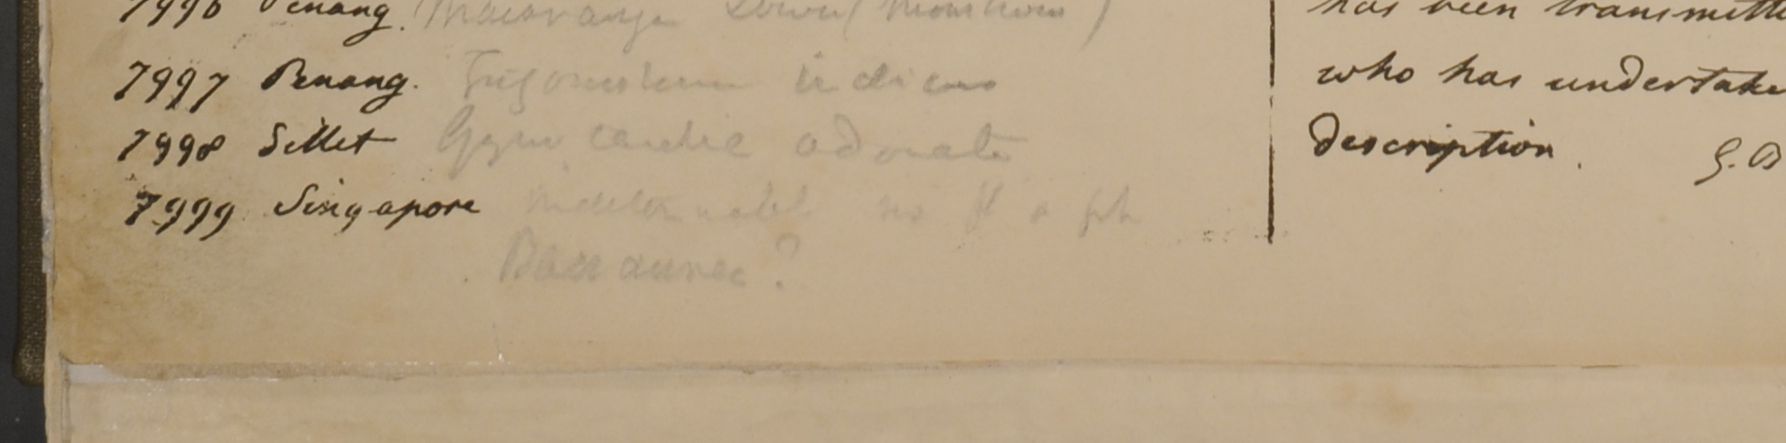 7996 Penang. Macaranga
7997 Penang. Trigonostemon indicus
7998 Sillet Gynocardia odorata
7999 Singapore
?
has been transmitte
who has undertake
description. G. B